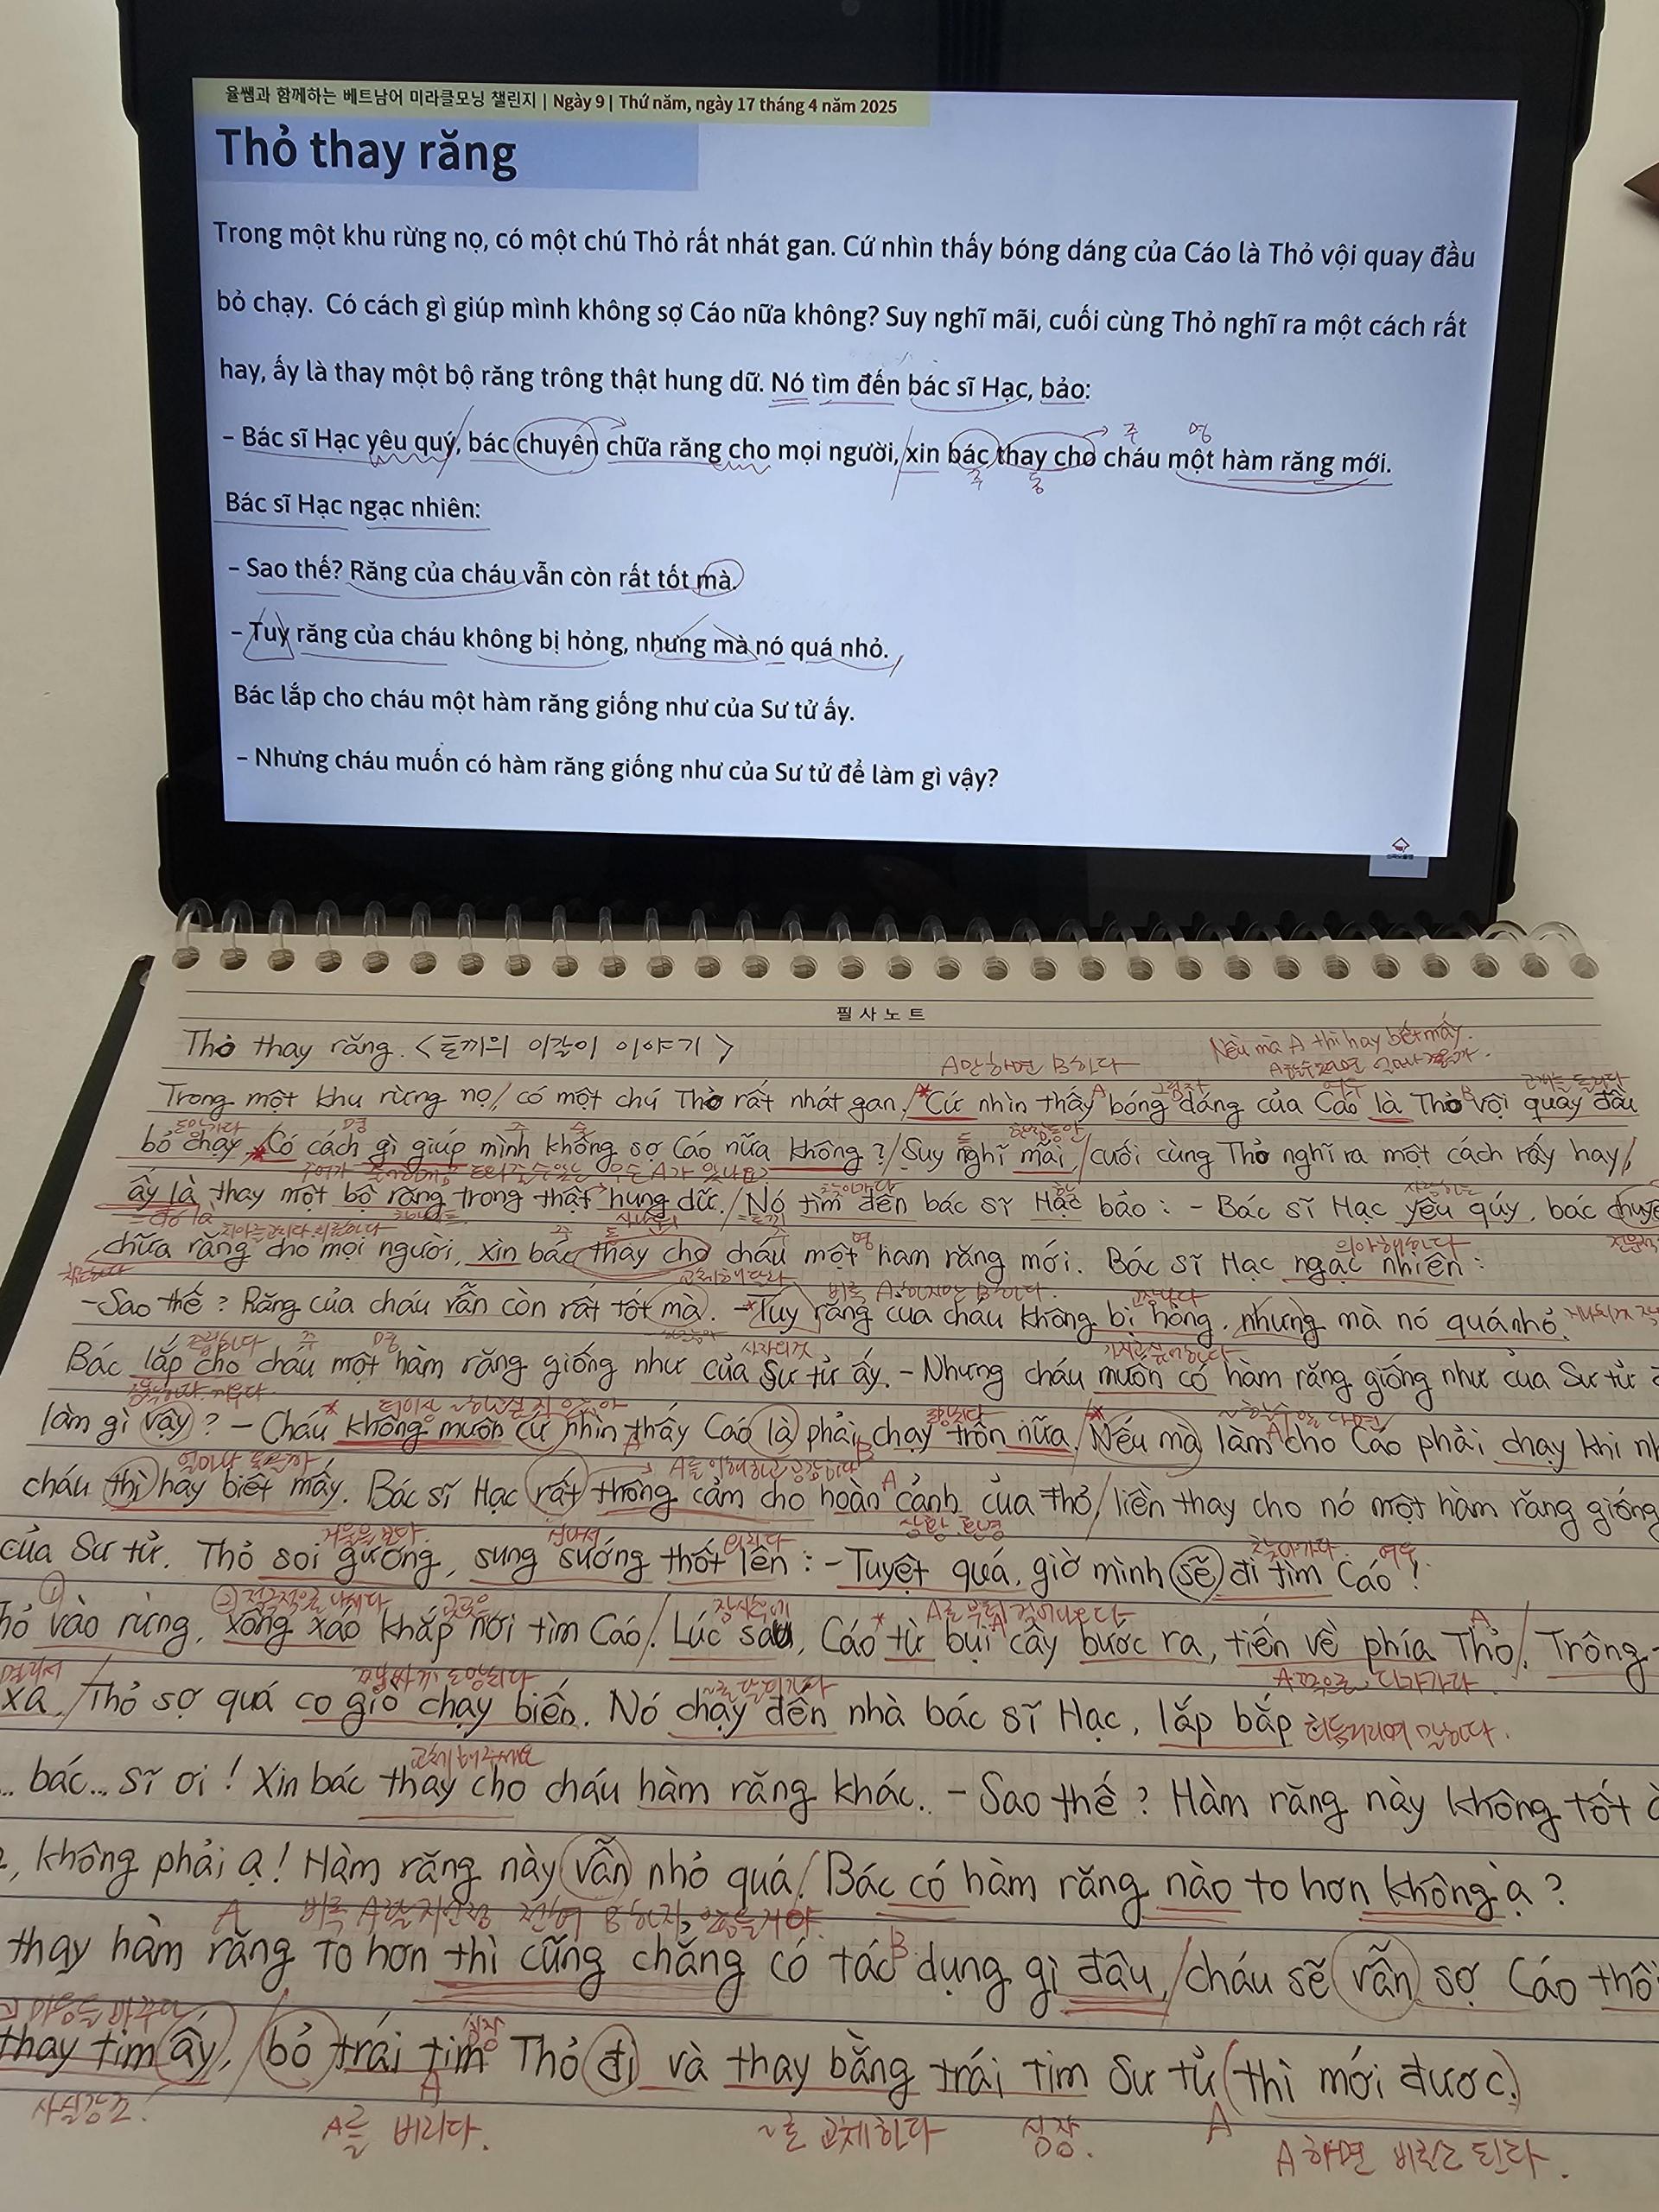 율쌤과 함께하는 베트남어 미라클모닝 챌린지 | Ngày 9 | Thứ năm, ngày 17 tháng 4 năm 2025
Thỏ thay răng
Trong một khu rừng nọ, có một chú Thỏ rất nhát gan. Cứ nhìn thấy bóng dáng của Cáo là Thỏ vội quay đầu
bỏ chạy. Có cách gì giúp mình không sợ Cáo nữa không? Suy nghĩ mãi, cuối cùng Thỏ nghĩ ra một cách rất
hay, ấy là thay một bộ răng trông thật hung dữ. Nó tìm đến bác sĩ Hạc, bảo:
– Bác sĩ Hạc yêu quý, bác chuyên chữa răng cho mọi người, xin bác thay cho cháu một hàm răng mới.
주 명
주 동
Bác sĩ Hạc ngạc nhiên:
– Sao thế? Răng của cháu vẫn còn rất tốt mà.
– Tuy răng của cháu không bị hỏng, nhưng mà nó quá nhỏ.
Bác lắp cho cháu một hàm răng giống như của Sư tử ấy.
– Nhưng cháu muốn có hàm răng giống như của Sư tử để làm gì vậy?
필사노트
Thỏ thay răng. <토끼의 이갈이 이야기>
Nếu mà A thì hay biết mấy.
A만하면 B하다
Trong một khu rừng nọ, có một chú Thỏ rất nhát gan. Cứ nhìn thấy bóng dáng của Cáo là Thỏ vội quay đầu
bỏ chạy. Có cách gì giúp mình không sợ Cáo nữa không? Suy nghĩ mãi, cuối cùng Thỏ nghĩ ra một cách rấy hay,
ấy là thay một bộ răng trong thật hung dữ. Nó tìm đến bác sĩ Hạc bảo: - Bác sĩ Hạc yêu quý, bác
chữa răng cho mọi người, xin bác thay cho cháu một ham răng mới. Bác sĩ Hạc ngạc nhiên:
의아해하다
교체해달라
- Sao thế? Răng của cháu vẫn còn rất tốt mà. - Tuy răng của cháu không bị hỏng, nhưng mà nó quá nhỏ.
Bác lắp cho cháu một hàm răng giống như của Sư tử ấy. - Nhưng cháu muốn có hàm răng giống như của Sư tử
làm gì vậy? - Cháu không muốn cứ nhìn thấy Cáo là phải chạy trốn nữa. Nếu mà làm cho Cáo phải chạy khi
cháu thì hay biết mấy. Bác sĩ Hạc rất thông cảm cho hoàn cảnh của Thỏ, liền thay cho nó một hàm răng giống
상황 환경
거울을 보다
của Sư tử. Thỏ soi gương, sung sướng thốt lên: - Tuyệt quá, giờ mình sẽ đi tìm Cáo!
찾아가다. 여우
vào rừng, xông xáo khắp nơi tìm Cáo. Lúc sau, Cáo từ bụi cây bước ra, tiến về phía Thỏ. Trông
A쪽으로 다가가다
xa, Thỏ sợ quá co giò chạy biến. Nó chạy đến nhà bác sĩ Hạc, lắp bắp
교체해주세요
bác... sĩ ơi! Xin bác thay cho cháu hàm răng khác. - Sao thế? Hàm răng này không tốt
không phải ạ! Hàm răng này vẫn nhỏ quá. Bác có hàm răng nào to hơn không ạ?
thay hàm răng to hơn thì cũng chẳng có tác dụng gì đâu, cháu sẽ vẫn sợ Cáo
심장
thay tim ấy, bỏ trái tim Thỏ đi và thay bằng trái tim Sư tử thì mới được.
사실강조!
A를 버리다.
~로 교체하다
심장.
A
A하면 비로소 된다.